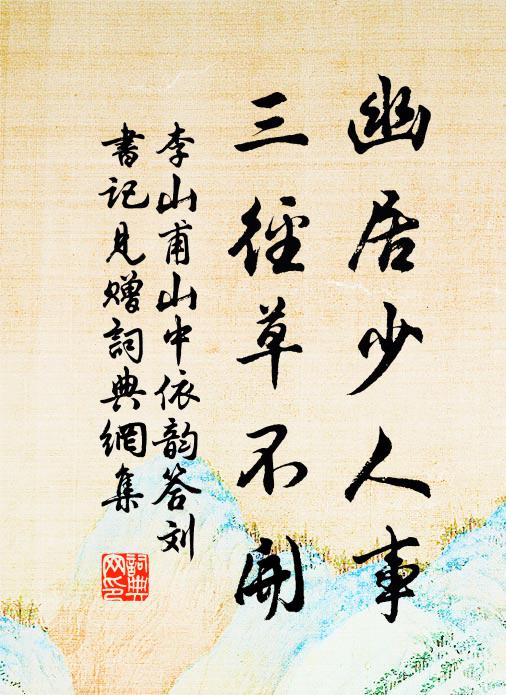 幽居少人事
三徑草不開
李山甫山中依韵答刘
書记見贈詞典網集
詞典
网印